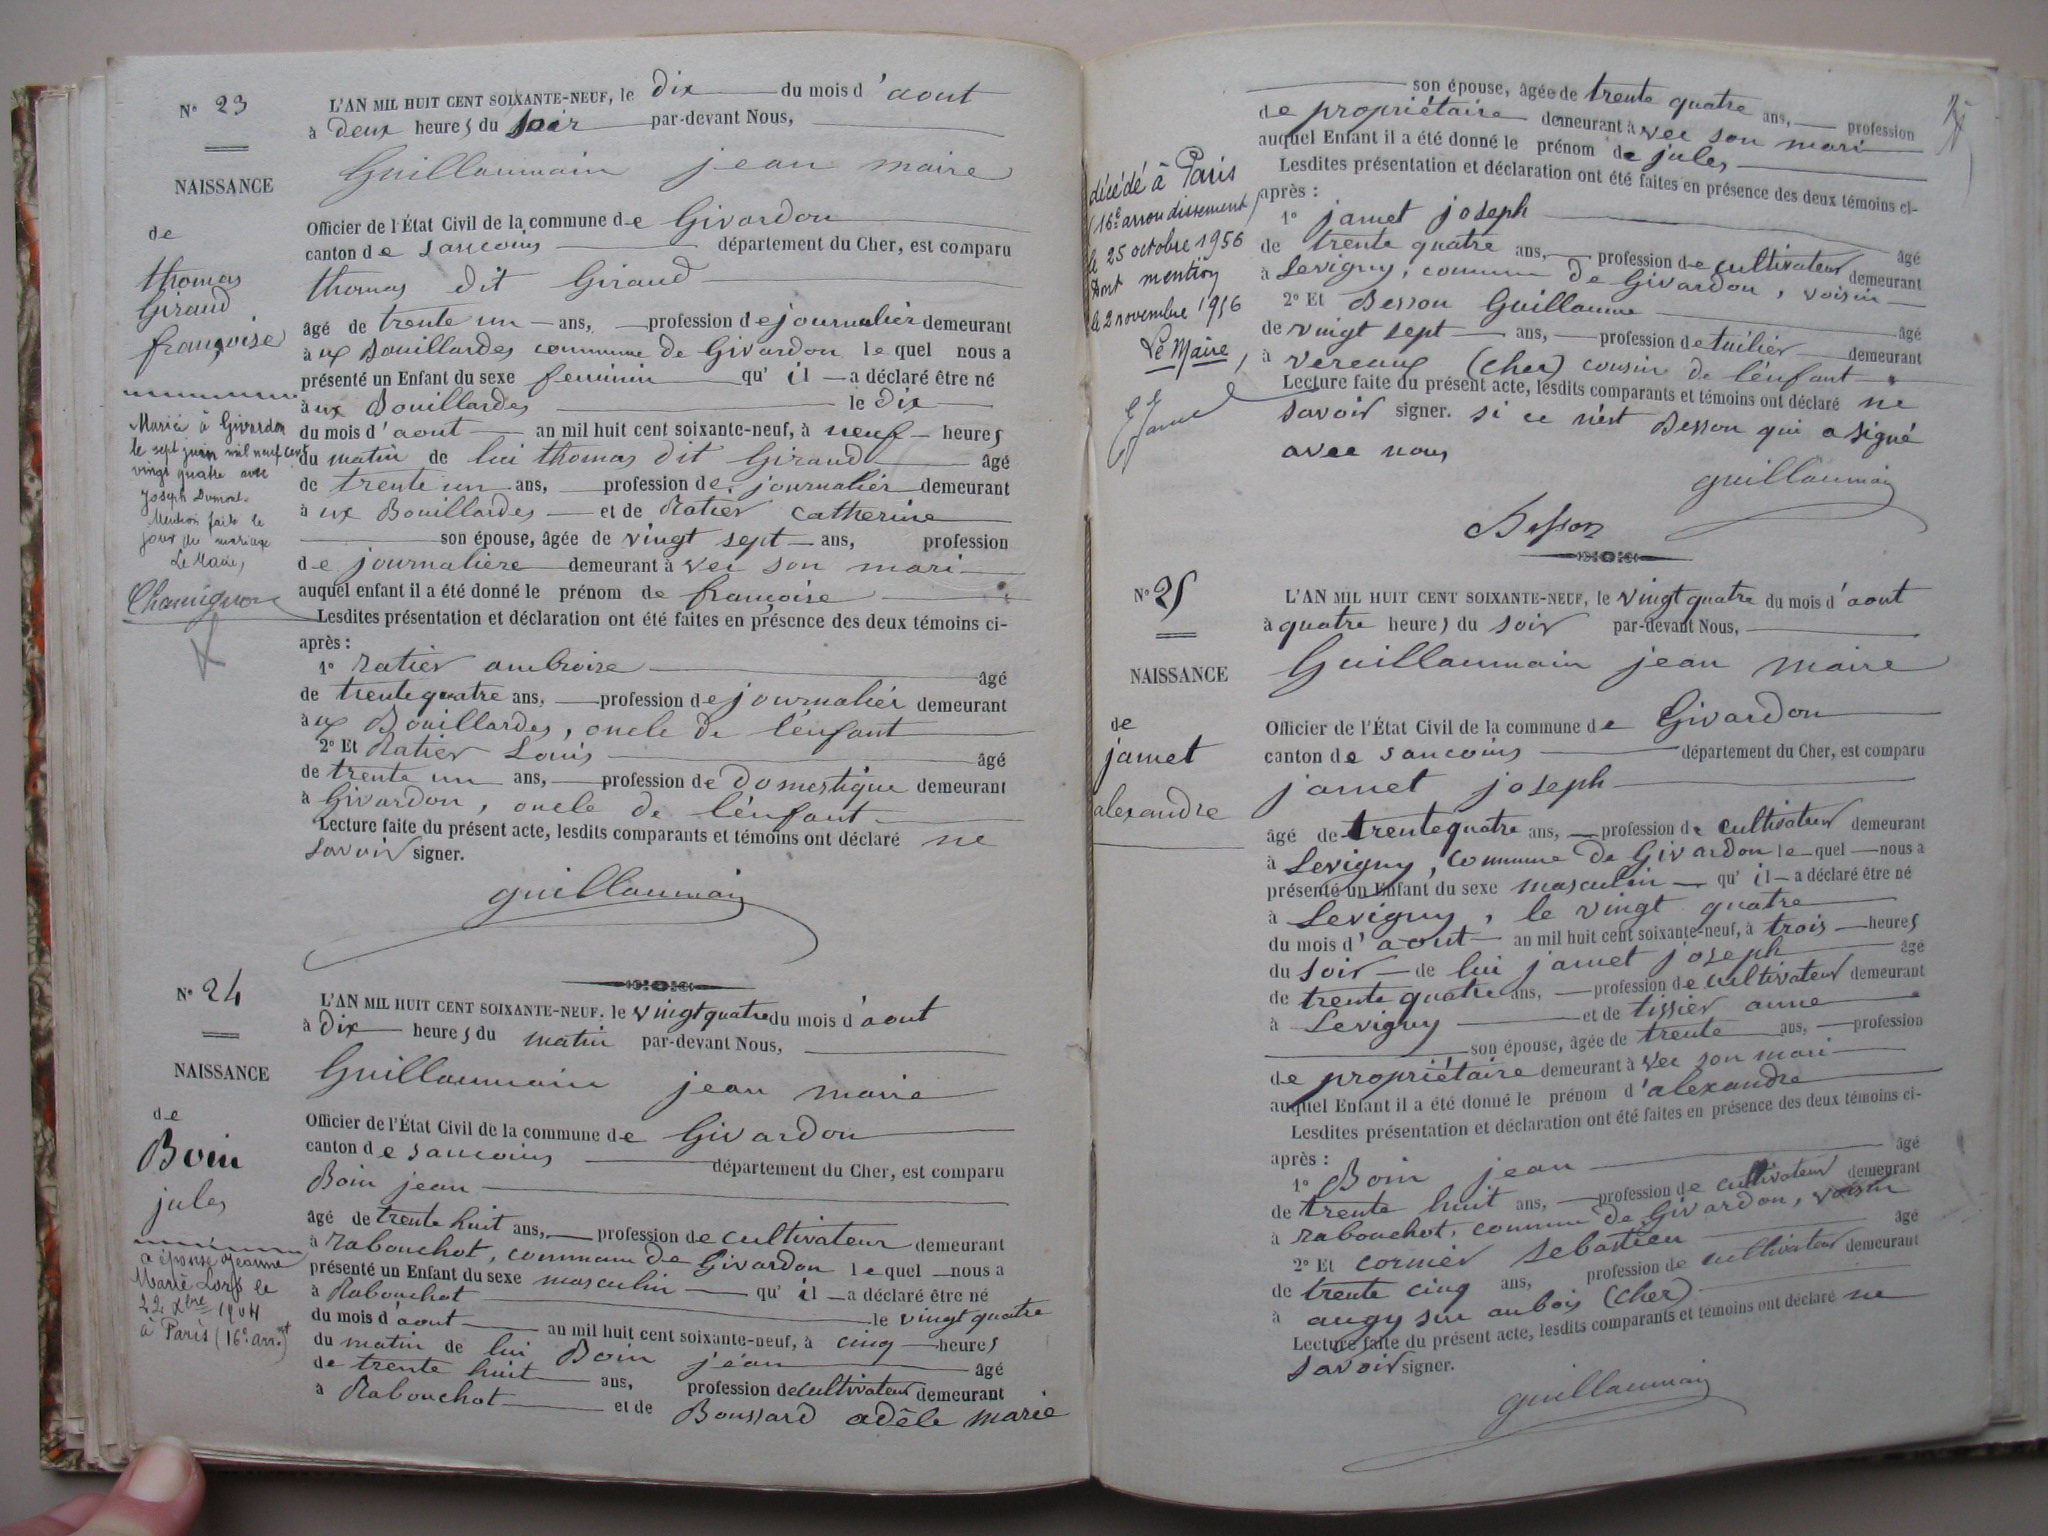 N° 23
NAISSANCE
de
thomas
Giraud
françoise
Marié à Givardon
le sept juin mil neuf cent
vingt quatre avec
Joseph Dumont.
Mention faite le
jour du mariage
Le Maire,
L'AN MIL HUIT CENT SOIXANTE-NEUF, le dix du mois d'aout
à deux heures du soir par-devant Nous,
Guillaumain jean maire
Officier de l'État Civil de la commune de Givardon
canton de sancoins département du Cher, est comparu
thomas dit Giraud
âgé de trente un ans, profession de journalier demeurant
à ux Bouillardes commune de Givardon lequel nous a
présenté un Enfant du sexe feminin qu'il a déclaré être né
à ux Bouillardes le dix
du mois d'aout an mil huit cent soixante-neuf, à neuf heures
du matin de lui thomas dit Giraud âgé
de trente un ans, profession de journalier demeurant
à ux Bouillardes et de Ratier catherine
son épouse, âgée de vingt sept ans, profession
de journaliere demeurant à vec son mari
auquel enfant il a été donné le prénom de françoise
Lesdites présentation et déclaration ont été faites en présence des deux témoins ci-
après :
1° Ratier ambroise âgé
de trente quatre ans, profession de journalier demeurant
à ux Bouillardes, oncle de l'enfant
2° Et Ratier Louis âgé
de trente un ans, profession de domestique demeurant
à Givardon, oncle de l'enfant
Lecture faite du présent acte, lesdits comparants et témoins ont déclaré ne
savoir signer.
guillaumain
N° 24
NAISSANCE
de
Boin
jules
a épousé Jeanne
Marie Lorp le
22 Xbre 1904
à Paris (16e. arr.nt)
L'AN MIL HUIT CENT SOIXANTE-NEUF, le vingt quatre du mois d'aout
à dix heures du matin par-devant Nous,
Guillaumain jean maire
Officier de l'État Civil de la commune de Givardon
canton de sancoins département du Cher, est comparu
Boin jean
âgé de trente huit ans, profession de cultivateur demeurant
à rabouchot, commune de Givardon lequel nous a
présenté un Enfant du sexe masculin qu'il a déclaré être né
à Rabouchot le vingt quatre
du mois d'aout an mil huit cent soixante-neuf, à cinq heures
du matin de lui Boin jean âgé
de trente huit ans, profession de cultivateur demeurant
à Rabouchot et de Boussard adèle marie
son épouse, âgée de trente quatre ans, profession
de propriétaire demeurant à vec son mari
auquel Enfant il a été donné le prénom de jules
Lesdites présentation et déclaration ont été faites en présence des deux témoins ci-
après :
1° jamet joseph âgé
de trente quatre ans, profession de cultivateur demeurant
à Levigny, commune de Givardon, voisin
2° Et Besson Guillaume âgé
de vingt sept ans, profession de tuilier demeurant
à vereaux (cher) cousin de l'enfant
Lecture faite du présent acte, lesdits comparants et témoins ont déclaré ne
savoir signer. si ce n'est Besson qui a signé
avec nous
guillaumain
Besson
décédé à Paris
(16e arrondissement)
le 25 octobre 1956
Dont mention
le 2 novembre 1956
Le Maire,
N° 25
NAISSANCE
de
jamet
alexandre
L'AN MIL HUIT CENT SOIXANTE-NEUF, le vingt quatre du mois d'aout
à quatre heures du soir par-devant Nous,
Guillaumain jean maire
Officier de l'État Civil de la commune de Givardon
canton de sancoins département du Cher, est comparu
jamet joseph
âgé de trente quatre ans, profession de cultivateur demeurant
à Levigny, commune de Givardon lequel nous a
présenté un Enfant du sexe masculin qu'il a déclaré être né
à Levigny, le vingt quatre
du mois d'aout an mil huit cent soixante-neuf, à trois heures
du soir de lui jamet joseph âgé
de trente quatre ans, profession de cultivateur demeurant
à Levigny et de tissier anne
son épouse, âgée de trente ans, profession
de propriétaire demeurant à vec son mari
auquel Enfant il a été donné le prénom d'alexandre
Lesdites présentation et déclaration ont été faites en présence des deux témoins ci-
après :
1° Boin jean âgé
de trente huit ans, profession de cultivateur demeurant
à rabouchot, commune de Givardon, voisin
2° Et cormier sebastien âgé
de trente cinq ans, profession de cultivateur demeurant
à augy sur aubois (cher)
Lecture faite du présent acte, lesdits comparants et témoins ont déclaré ne
savoir signer.
guillaumain